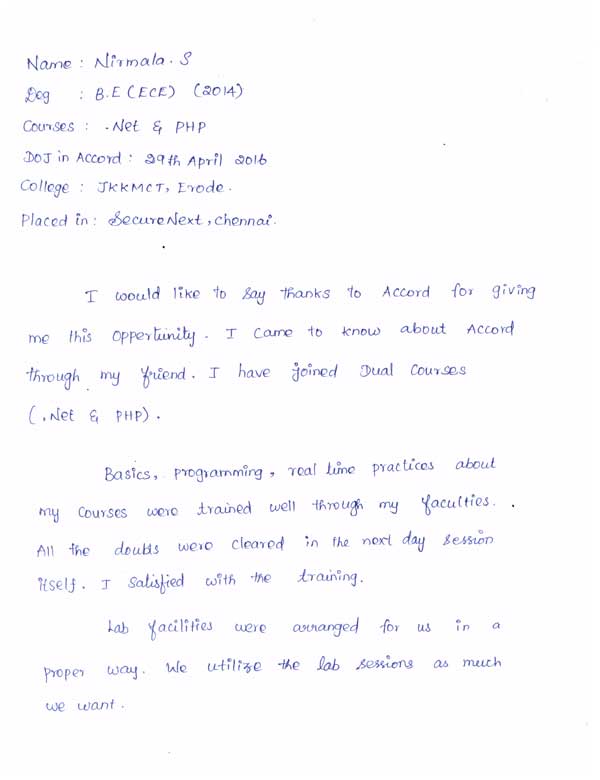 Name : Nirmala. S
Deg : B.E (ECE) (2014)
Courses : .Net & PHP
DOJ in Accord : 29th April 2016
College : JKKMCT, Erode.
Placed in : SecureNext, chennai.
I would like to say thanks to Accord for giving
me this oppertunity. I came to know about Accord
through my friend. I have joined Dual Courses
(.Net & PHP).
Basics, programming, real time practices about
my courses were trained well through my faculties.
All the doubts were cleared in the next day session
itself. I satisfied with the training.
Lab facilities were arranged for us in a
proper way. We utilize the lab sessions as much
we want.